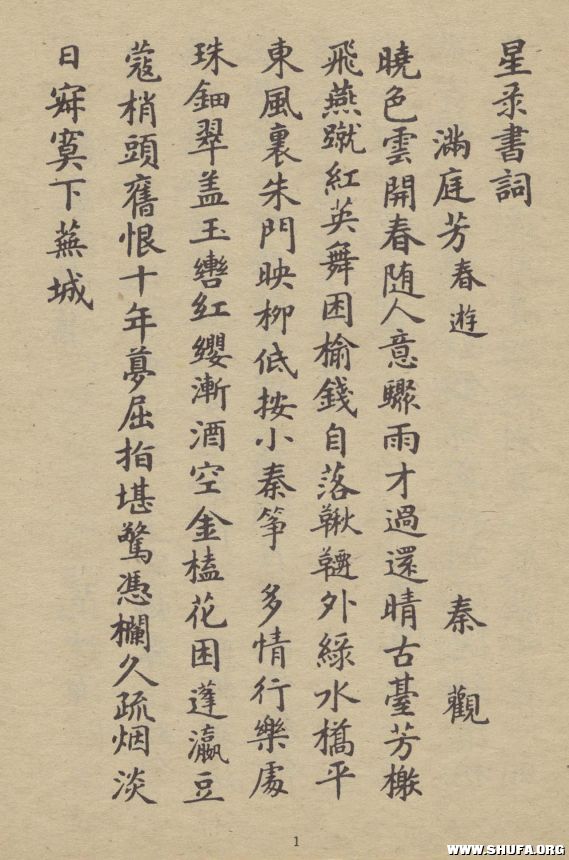 星彔書詞
滿庭芳 春遊 秦觀
曉色雲開春随人意驟雨才過還晴古臺芳榭
飛燕蹴紅英舞困榆錢自落鞦韆外綠水橋平
東風裏朱門映柳低按小秦筝 多情行樂處
珠鈿翠盖玉轡紅纓漸酒空金榼花困蓬瀛豆
蔻梢頭舊恨十年夢屈指堪驚憑欄久疏烟淡
日寂寞下蕪城
1
WWW.SHUFA.ORG